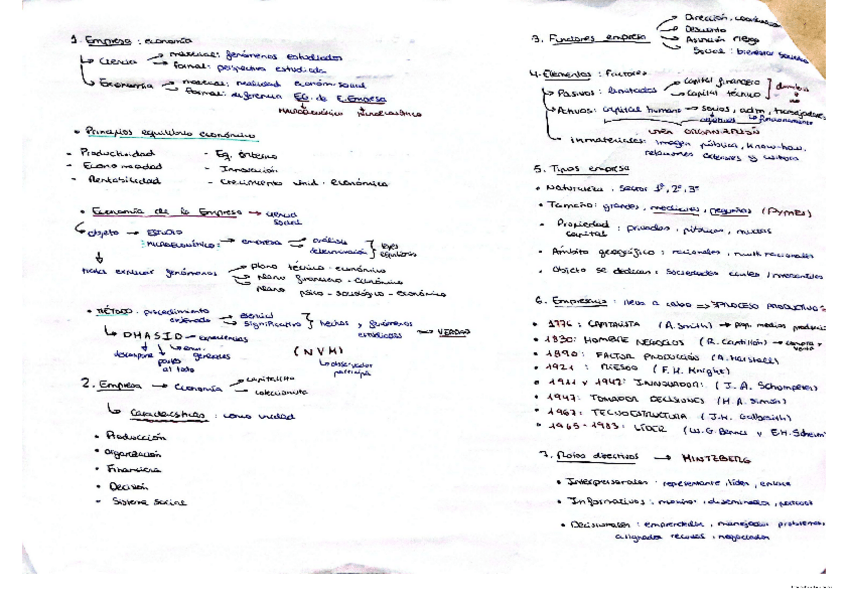 1. Empresa : economía
↳ Ciencia → material: fenómenos estudiados
→ formal: perspectiva estudiada
↳ Economía → material: realidad económ. social
→ formal: EG. de E. Empresa
macroeconómico microeconómico
• Principios equilibrio económico
- Productividad - Eq. interno
- Economicidad - Innovación
- Rentabilidad - Crecimiento unid. económica
• Economía de la Empresa → ciencia social
↳ objeto → ESTUDIO
microeconómico: → empresa → análisis
determinación leyes equilibrio
trata explicar fenómenos → plano técnico - económico
→ plano financiero - económico
→ plano psico - sociológico - económico
• MÉTODO: procedimiento ordenado → esencial
→ significativo hechos y fenómenos económicos → VERDAD
↳ DHASID → generales
(NVM)
↳ observador participa
2. Empresa → Economía → capitalista
→ colectivista
↳ Características : como unidad
• Producción
• Organización
• Financiera
• Decisión
- Sistema Social
3. Funciones empresa → Dirección,
→ Descuento
→ Asunción riesgo
→ Social: bienestar
4. Elementos : Factores
↳ Pasivos: limitados → capital financiero
→ capital técnico
↳ Activos: capital humano → socios, adm, trabajadores
objetivos funcionamiento
ORGANIZACIÓN
↳ inmateriales: imagen pública, know-how,
relaciones exteriores y cultura
5. Tipos empresa
• Naturaleza : Sector 1º, 2º, 3º
• Tamaño: grandes, medianas, pequeñas (Pymes)
• Propiedad capital : privadas, públicas, mixtas
• Ámbito geográfico : nacionales, multinacionales
• Objeto se dedican: Sociedades civiles / mercantiles
6. Empresario : lleva a cabo → PROCESO PRODUCTIVO
• 1776: CAPITALISTA (A. Smith) → prop. medios
• 1830: HOMBRE NEGOCIOS (R. Cantillón) → compra y venta
• 1890: FACTOR PRODUCCIÓN (A. Marshall)
• 1921 : RIESGO (F. H. Knight)
• 1911 y 1942: INNOVADOR: (J. A. Schumpeter)
• 1947: TOMADOR DECISIONES (H. A. Simon)
• 1967: TECNOESTRUCTURA (J. K. Galbraith)
• 1965 - 1983: LÍDER (W. G. Bennis y E.H. Schein)
7. Roles directivos → MINTZBERG
• Interpersonales : representante, líder, enlace
• Informativos : monitor, diseminador, portavoz
• Decisionales : emprendedor, manejador problemas,
asignador recursos, negociador